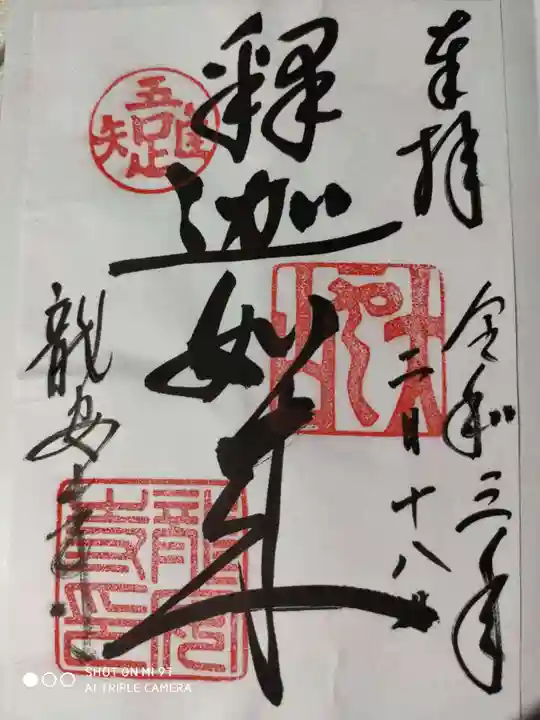 奉拝
令和三年
二月十八日
釋迦如来
龍安寺
吾唯足知
龍安
寺印
SHOT ON MI 9T
AI TRIPLE CAMERA